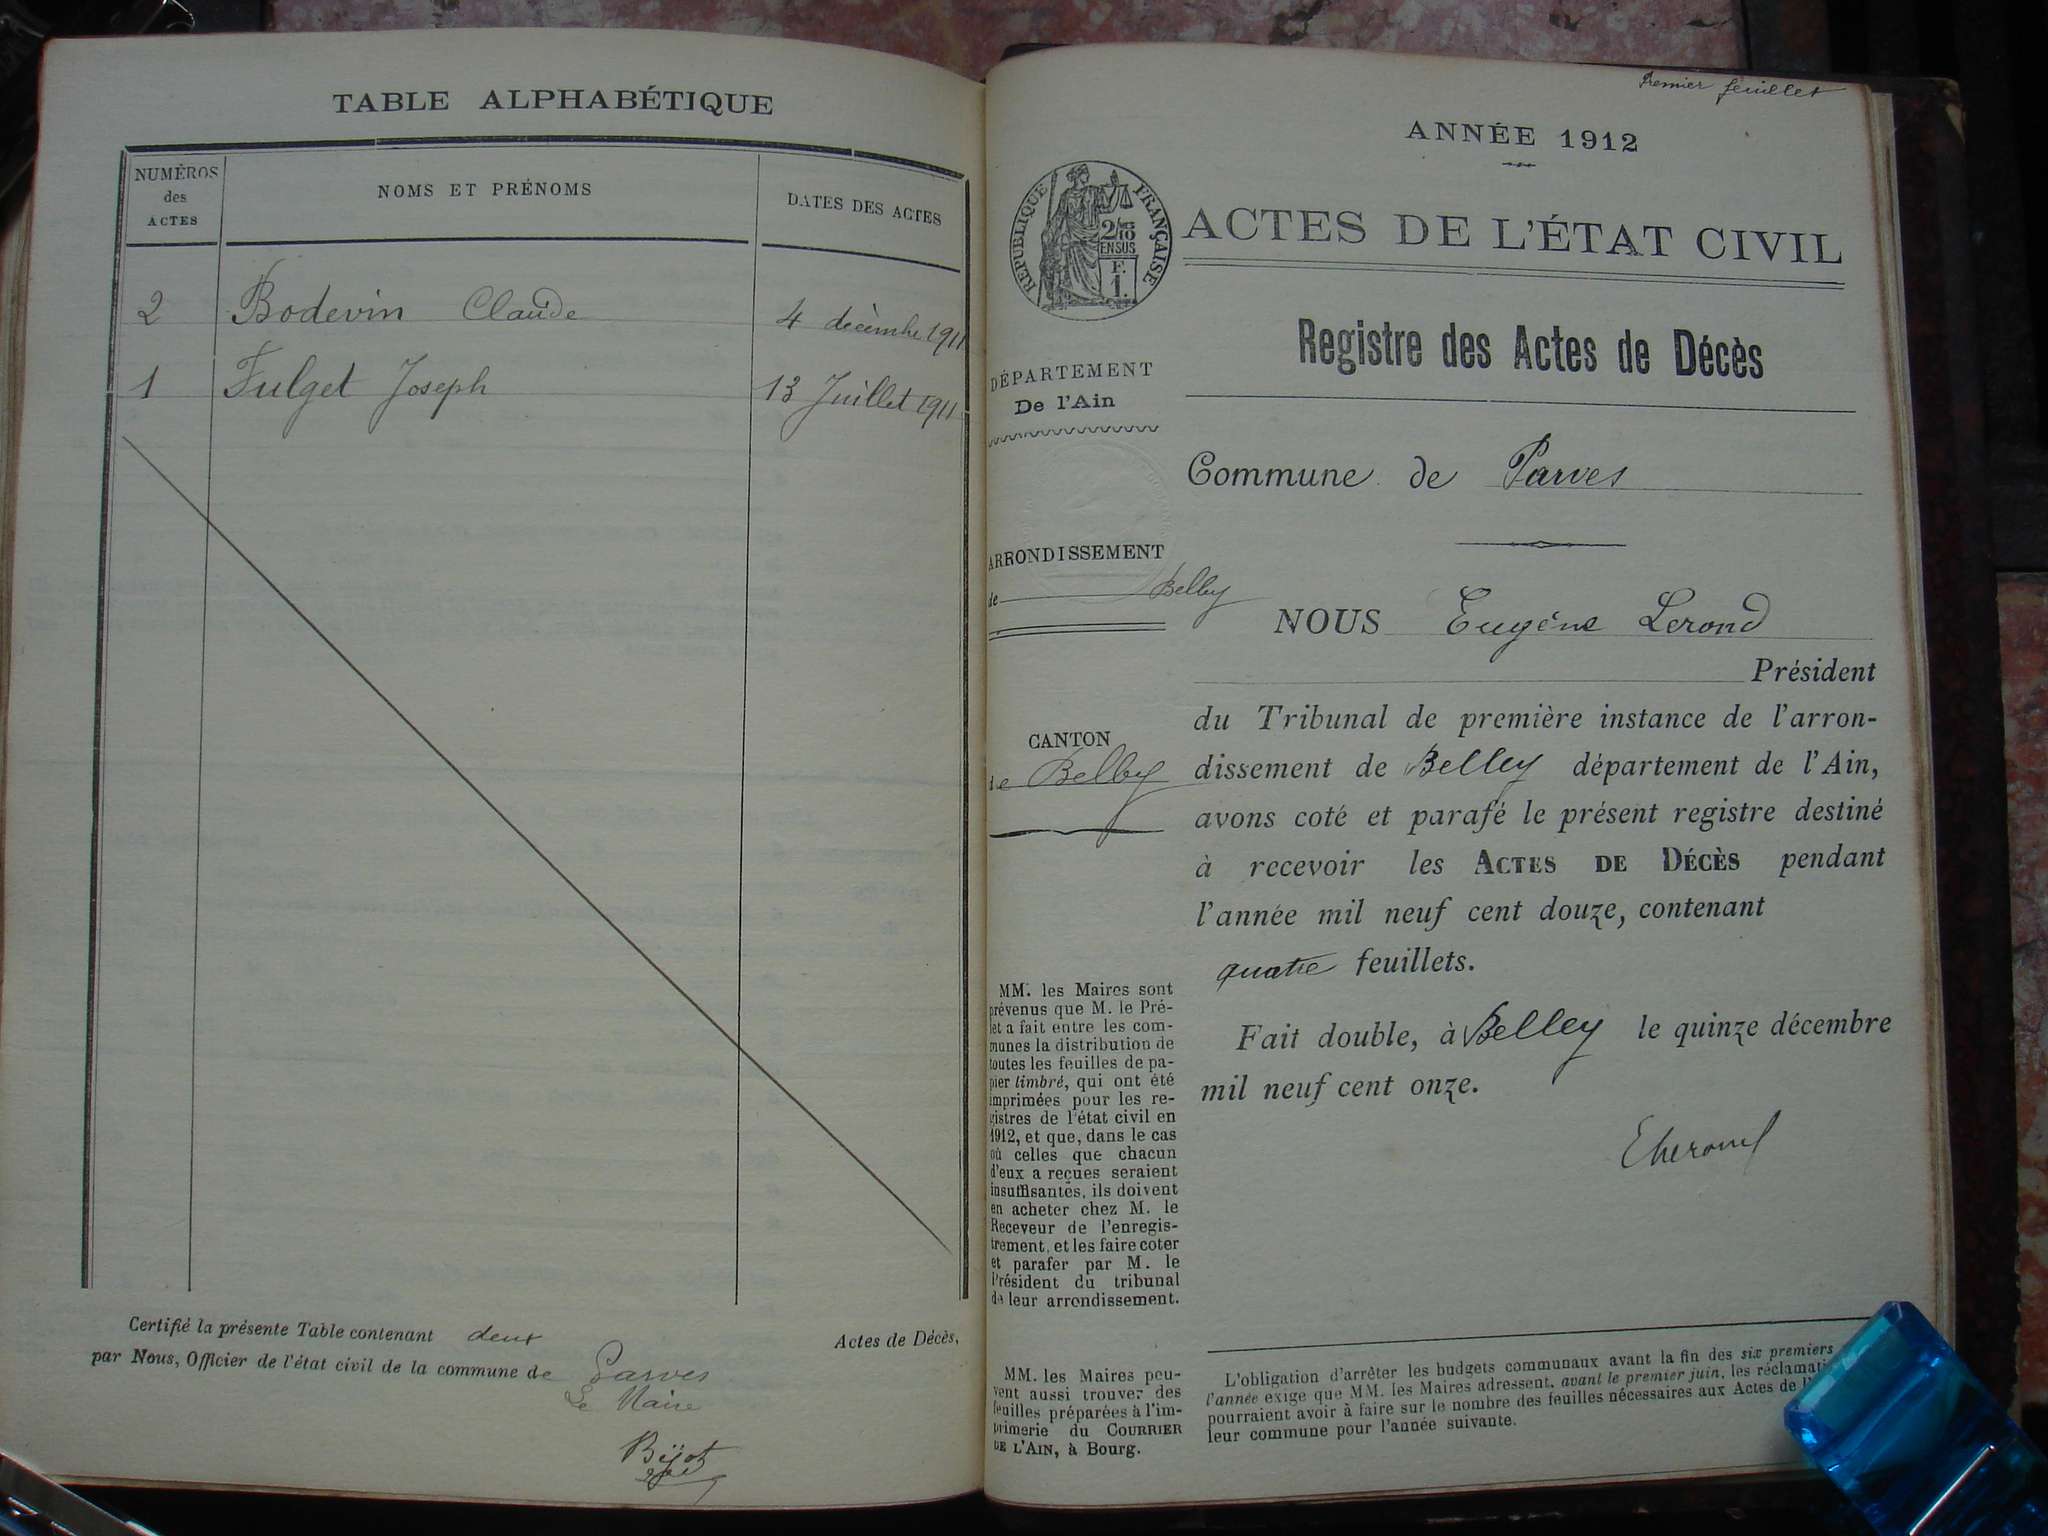 TABLE ALPHABÉTIQUE
NUMÉROS des ACTES
NOMS ET PRÉNOMS
DATES DES ACTES
2 Bodevin Claude 4 décembre 1911
1 Fulget Joseph 13 Juillet 1911
Certifié la présente Table contenant deux Actes de Décès,
par Nous, Officier de l'état civil de la commune de Parves
Le Maire
Bijot
Premier feuillet
ANNÉE 1912
RÉPUBLIQUE FRANÇAISE
2/10
EN SUS
F.
1.
ACTES DE L'ÉTAT CIVIL
Registre des Actes de Décès
DÉPARTEMENT
De l'Ain
Commune de Parves
ARRONDISSEMENT
de Belley
CANTON
de Belley
NOUS Eugène Lerond
Président
du Tribunal de première instance de l'arron-
dissement de Belley département de l'Ain,
avons coté et parafé le présent registre destiné
à recevoir les ACTES DE DÉCÈS pendant
l'année mil neuf cent douze, contenant
quatre feuillets.
Fait double, à Belley le quinze décembre
mil neuf cent onze.
MM. les Maires sont
prévenus que M. le Pré-
fet a fait entre les com-
munes la distribution de
toutes les feuilles de pa-
pier timbré, qui ont été
imprimées pour les re-
gistres de l'état civil en
1912, et que, dans le cas
où celles que chacun
d'eux a reçues seraient
insuffisantes, ils doivent
en acheter chez M. le
Receveur de l'enregis-
trement, et les faire coter
et parafer par M. le
Président du tribunal
de leur arrondissement.
MM. les Maires peu-
vent aussi trouver des
feuilles préparées à l'im-
primerie du COURRIER
DE L'AIN, à Bourg.
L'obligation d'arrêter les budgets communaux avant la fin des six premiers
l'année exige que MM. les Maires adressent, avant le premier juin, les réclamati
pourraient avoir à faire sur le nombre des feuilles nécessaires aux Actes de l'
leur commune pour l'année suivante.